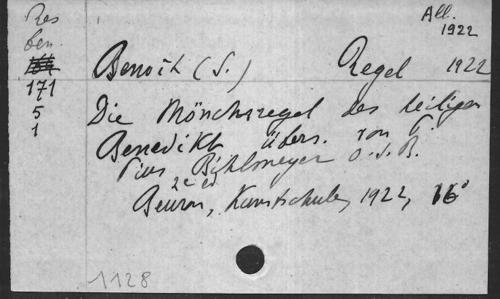 Res
ben.
171
5
1
All.
1922
Benoît (S.) Regel 1922
Die Mönchsregel des heiligen
Benedikt übers. von P.
Pius Bihlmeyer O.S.B.
2e ed
Beuron, Kunstschule, 1922, 16°
1128